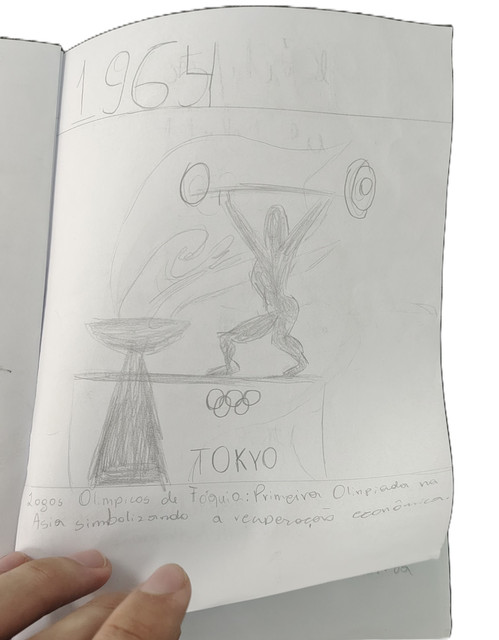 1964
TOKYO
Jogos Olimpicos de Tóquio: Primeira Olimpiada na
Asia simbolizando a recuperação econômica.